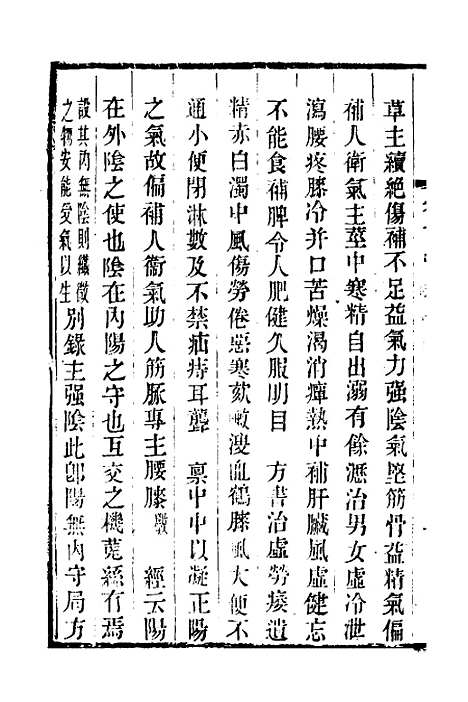 草主續絕傷補不足益氣力强陰氣堅筋骨益精氣偏
補人衛氣主莖中寒精自出溺有餘瀝治男女虛冷泄
瀉腰疼膝冷并口苦燥渴消癉熱中補肝臟風虛健忘
不能食補脾令人肥健久服明目　方書治虛勞痿遺
精赤白濁中風傷勞倦惡寒欬嗽溲血鶴膝風大便不
通小便閉淋數及不禁疝痔耳聾　稟中中以凝正陽
之氣故偏補人衛氣助人筋脈專主腰膝　經云陽
在外陰之使也陰在內陽之守也互交之機莵絲有焉
設其內無陰則纖微之物安能愛氣以生別錄主强陰此即陽無內守局方